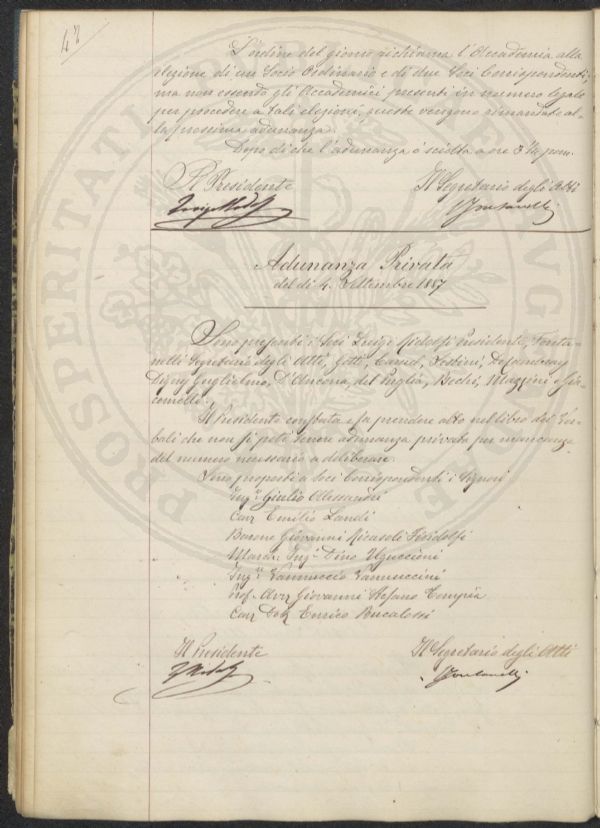 48
L'ordine del giorno richiama l'Accademia alla
elezione di un Socio Ordinario e di due Soci Corrispondenti,
ma non essendo gli Accademici presenti in numero legale
per procedere a tali elezioni, queste vengono rimandate al-
la prossima adunanza.
Dopo di che l'adunanza è sciolta a ore 3 1/4 pom.
Il Presidente
Il Segretario degli Atti
Fontanelli
Adunanza Privata
del dì 4 Settembre 1887
Sono presenti i Soci Luigi Ridolfi Presidente, Fonta-
nelli Segretario degli Atti, Gotti, Caruel, Pestini, De Cambray
Digny Guglielmo, D'Ancona, del Puglia, Bechi, Mazzini e Gia-
comelli.
Il Presidente constata e fa prendere atto nel libro dei Ver-
bali che non si potè tenere adunanza privata per mancanza
del numero necessario a deliberare.
Sono proposti a Soci Corrispondenti i Signori
Ing.re Giulio Alessandri
Cav. Emilio Landi
Barone Giovanni Ricasoli Firidolfi
March. Ing.re Dino Uguccioni
Ing.re Vannuccio Vannuccini
Prof. Avv. Giovanni Stefano Tempia
Cav. Dott. Enrico Bucalossi
Il Presidente
Il Segretario degli Atti
Fontanelli
PROSPERITATI PUBLICAE AUGENDAE